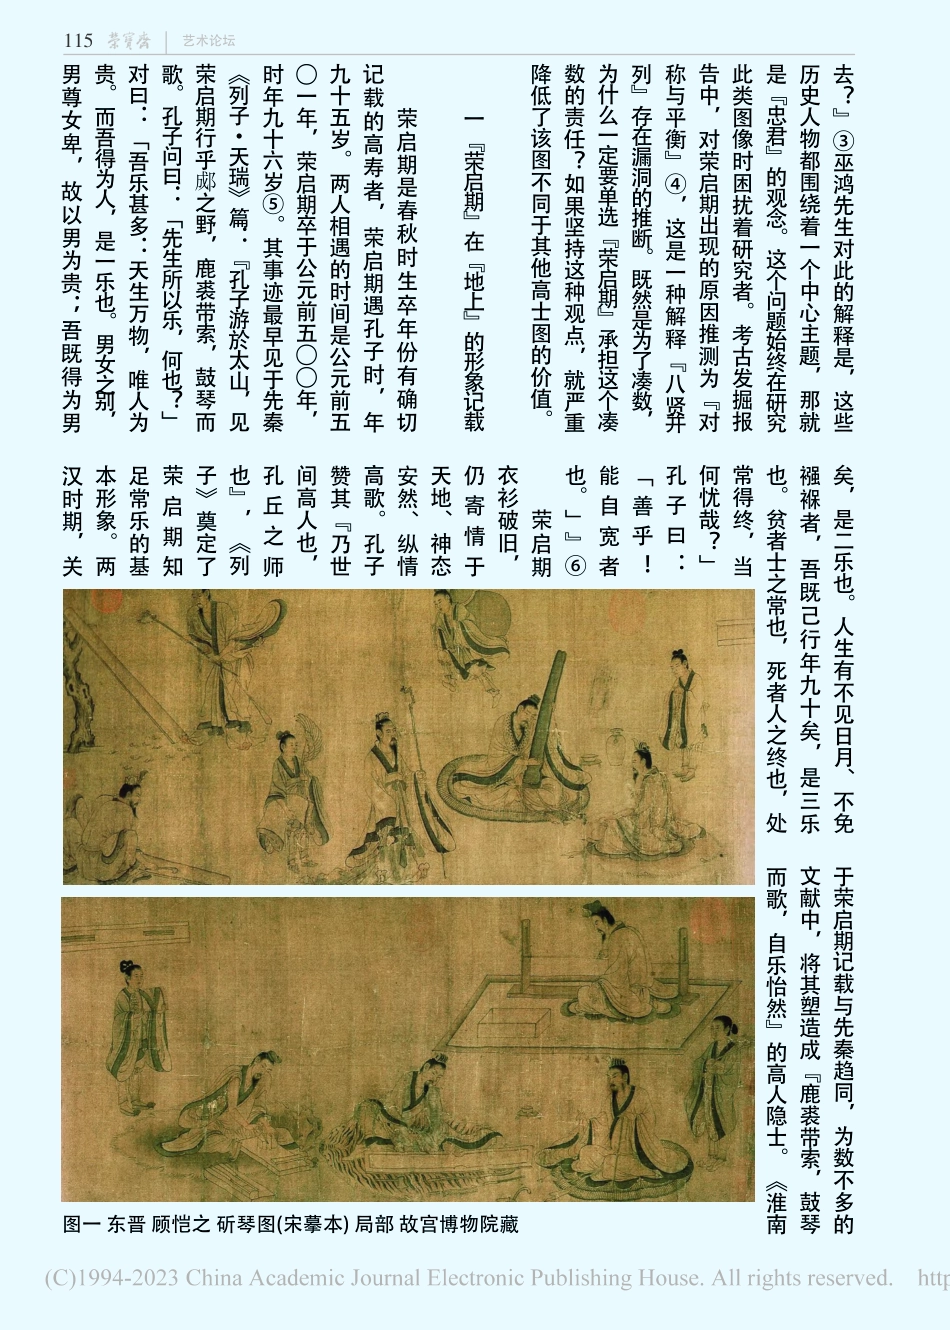 115 荣宝斋 艺术论坛
去？』③巫鸿先生对此的解释是，这些
历史人物都围绕着一个中心主题，那就
是『忠君』的观念。这个问题始终在研究
此类图像时困扰着研究者。考古发掘报
告中，对荣启期出现的原因推测为『对
称与平衡』④，这是一种解释『八贤并
列』存在漏洞的推断。既然是为了凑数，
为什么一定要单选『荣启期』承担这个凑
数的责任？如果坚持这种观点，就严重
降低了该图不同于其他高士图的价值。
一 『荣启期』在『地上』的形象记载
荣启期是春秋时生卒年份有确切
记载的高寿者，荣启期遇孔子时，年
九十五岁。两人相遇的时间是公元前五
〇一年，荣启期卒于公元前五〇〇年，
时年九十六岁⑤。其事迹最早见于先秦
《列子·天瑞》篇．『孔子游於太山，见
荣启期行乎郕之野，鹿裘带索，鼓琴而
歌。孔子问曰：「先生所以乐，何也？」
对曰：「吾乐甚多：天生万物，唯人为
贵。而吾得为人，是一乐也。男女之别，
男尊女卑，故以男为贵；吾既得为男
矣，是二乐也。人生有不见日月、不免
襁褓者，吾既己行年九十矣，是三乐
也。贫者士之常也，死者人之终也，处
常得终，当
何忧哉？」
孔子曰：
「善乎！
能自宽者
也。」』⑥
荣启期
衣衫破旧，
仍寄情于
天地、神态
安然、纵情
高歌。孔子
赞其『乃世
间高人也，
孔丘之师
也』，《列
子》奠定了
荣启期知
足常乐的基
本形象。两
汉时期，关
于荣启期记载与先秦趋同，为数不多的
文献中，将其塑造成『鹿裘带索，鼓琴
而歌，自乐怡然』的高人隐士。《淮南
图一 东晋 顾恺之 斫琴图(宋摹本) 局部 故宫博物院藏
(C)1994-2023 China Academic Journal Electronic Publishing House. All rights reserved. http